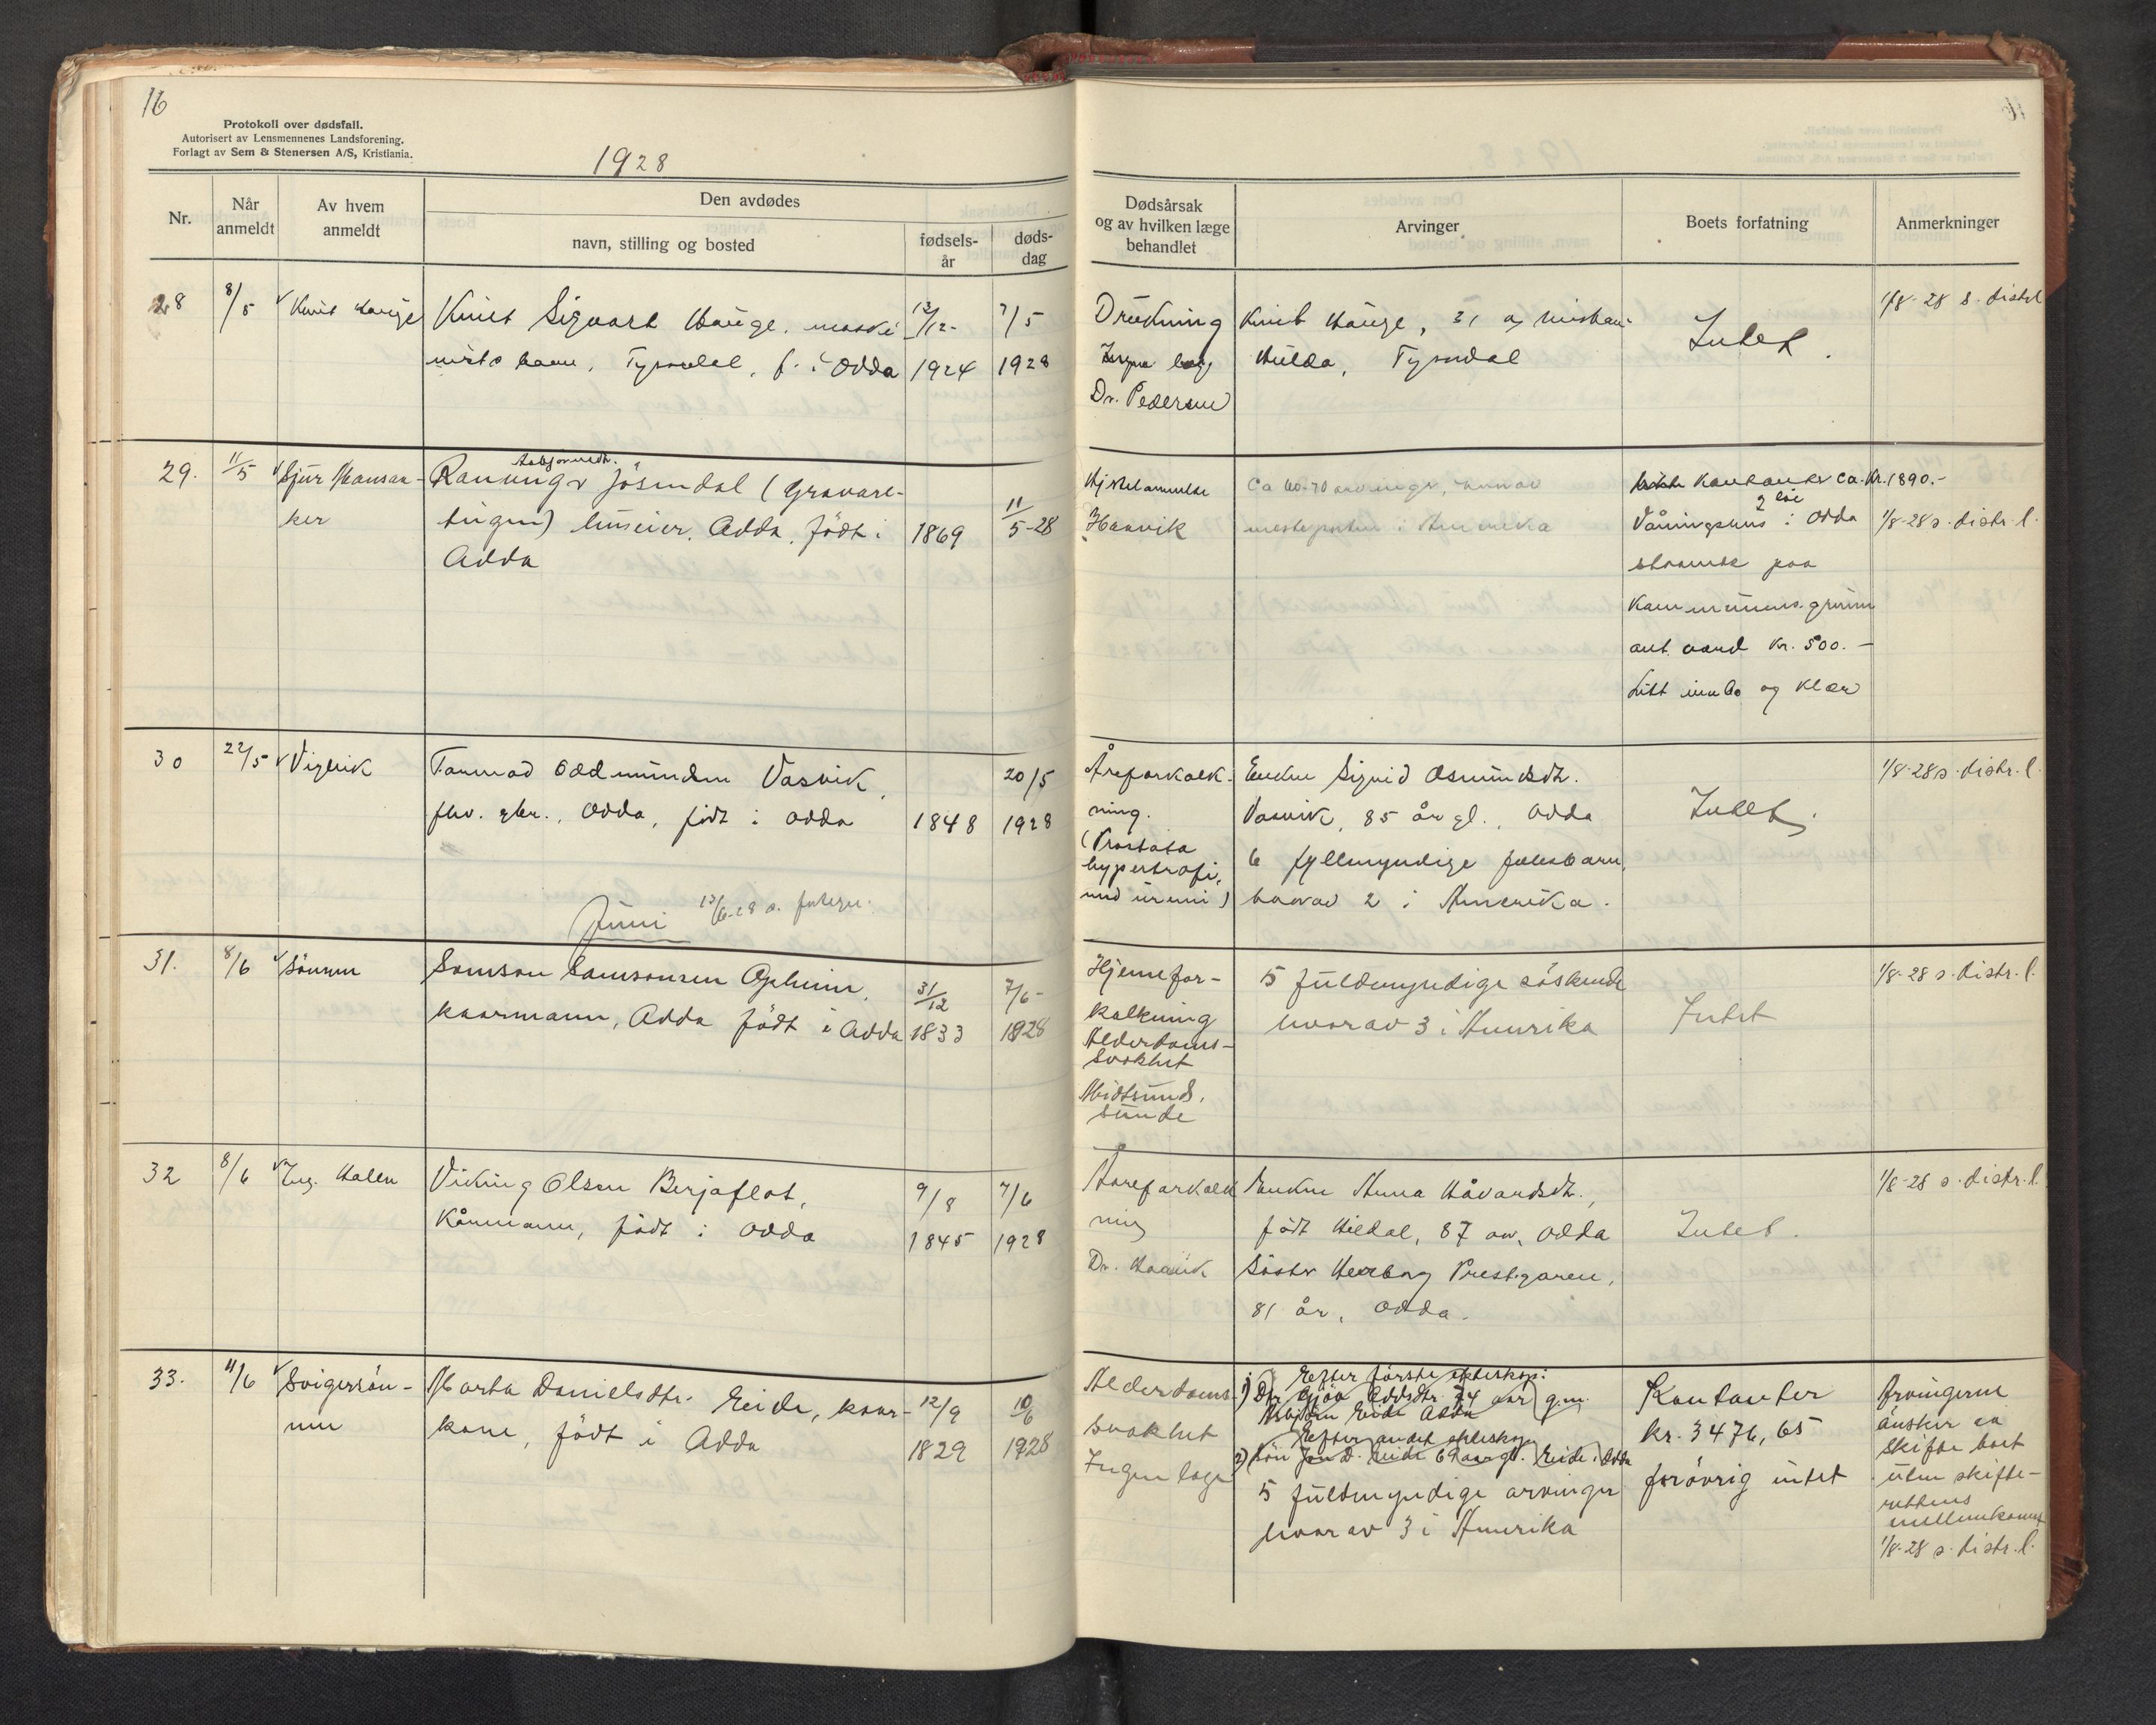 16
Protokoll over dødsfall.
Autorisert av Lensmennenes Landsforening.
Forlagt av Sem & Stenersen A/S, Kristiania.
1928
Nr.
Når anmeldt
Av hvem anmeldt
Den avdødes
navn, stilling og bosted
fødsels-år
døds-dag
Dødsårsak og av hvilken læge behandlet
Arvinger
Boets forfatning
Anmerkninger
28
8/5
Knut Hauge
Knut Sigvart Hauge, maski-
nists barn, Tyssedal, f. i Odda
13/12-
1924
7/5
1928
Drukning
Ingen læg
Dr. Pedersen
Knut Hauge, 31 og
Hulda, Tyssedal
Intet.
1/8-28 s. distr.l
29.
11/5
Sjur Mansaa-
ker
Asbjørnsdtr.
Jösendal (Gravare-
tingen) huseier, Adda, födt i
Adda
1869
11/5-28
Hjertelammelse
Haavik
Ca 60-70 arvinger, hvorav
mesteparten i Amerika
Kontanter ca. Kr. 1890.-
Våningshus i Odda
staaende paa
Kommunens grunn
ant. værd kr. 500.-
Litt innbo og klær
1/8-28 s. distr. l.
30
22/5
Vigleik
Tormod Oddmundsen Vasvik,
fhv. gbr., Odda, født i Odda
1848
20/5
1928
Åreforkalk-
ning.
(Prostata
hypertrofi,
med uremi)
Enken Sigrid Osmundsdtr.
Vasvik, 85 år gl., Odda
6 fyllmyndige fellesbarn,
hvorav 2 i Amerika.
Intet.
1/8-28 s. distr. l.
Juni
31.
8/6
Sönnen
Samson Samsonsen Opheim,
kaarmann, Adda födt i Adda
31/12
1833
7/6-
1928
Hjernefor-
kalkning
Alderdoms-
svakhet
Midtsund,
5 fuldmyndige söskende
hvorav 3 i Amerika
Intet
1/8-28 s. distr. l.
32
8/6
Ing. Halen
Viking Olsen Berjaflot,
Kårmann, födt i Odda
9/8
1845
7/6
1928
Aareforkalk
ning
Dr. Haavik
Enken Anna Håvardsdtr.,
födt Hildal, 87 aar, Odda
Söster Herborg Prestgaren,
81 år, Odda.
Intet.
1/8-28 s. distr. l.
33.
11/6
Svigersön-
nen
Marta Danielsdtr. Eide, kaar-
kone, födt i Adda
12/9
1829
10/6
1928
Alderdoms-
svakhet
Ingen læge
Efter förste ekteskap:
1) Dtr. Gjöa Oddsdtr. 74 aar g.m.
Eide Adda
Efter andet ekteskap
2) Sön Jon D. Eide 69 aar gl. Eide i Odda
5 fuldmyndige arvinger
hvorav 3 i Amerika
Kontanter
kr. 3476,65
forövrig intet
Arvingerne
önsker at
skifte boet
uten skifte-
rettens
mellemkomst
1/8-28 s. distr. l.